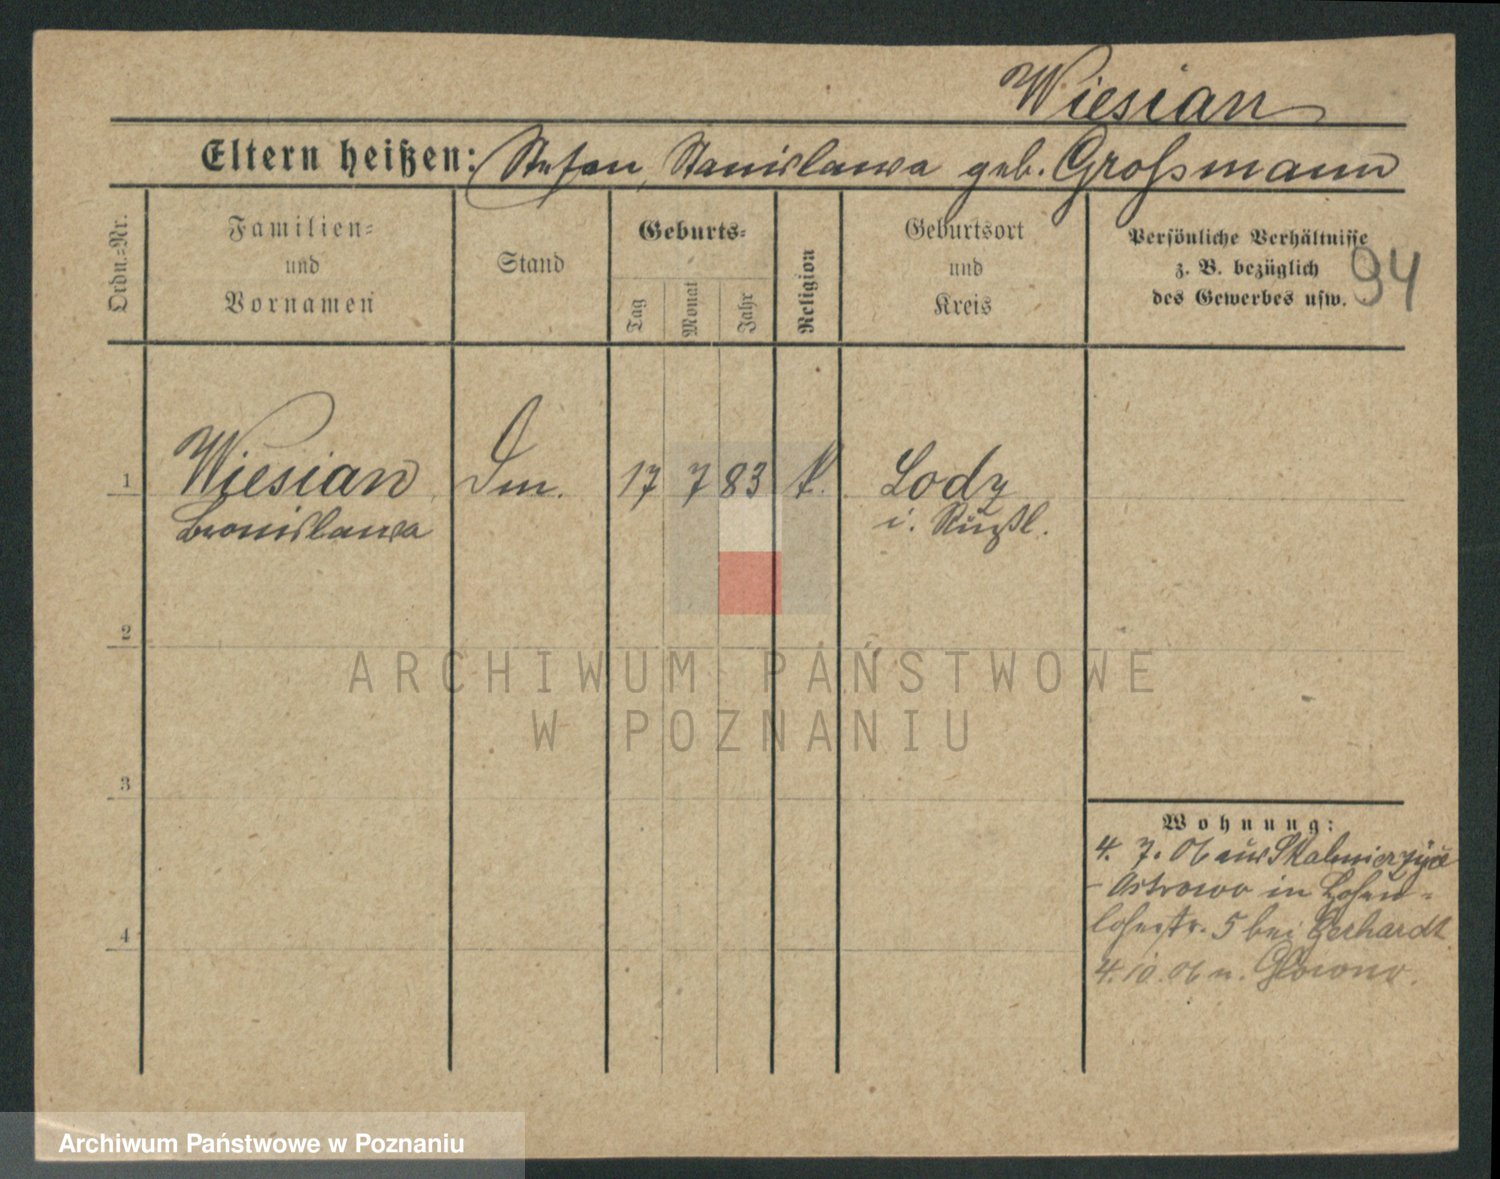 Wiesian
Eltern heißen: Stefan, Stanislawa geb. Großmann
Ordn.-Nr.
Familien-
und
Vornamen
Stand
Geburts-
Tag
Monat
Jahr
Religion
Geburtsort
und
Kreis
Persönliche Verhältnisse
z. B. bezüglich
des Gewerbes usw.
94
1 Wiesian 17 7 83 k. Lodz
Bronislawa i. Rußl.
2
3
4
ARCHIWUM PAŃSTWOWE
W POZNANIU
Wohnung:
4. 7. 06 aus Skalmierzyce
- Ostrowo in Hohen-
lohestr. 5 bei Gerhardt
4. 10. 06 n. Glowno.
Archiwum Państwowe w Poznaniu